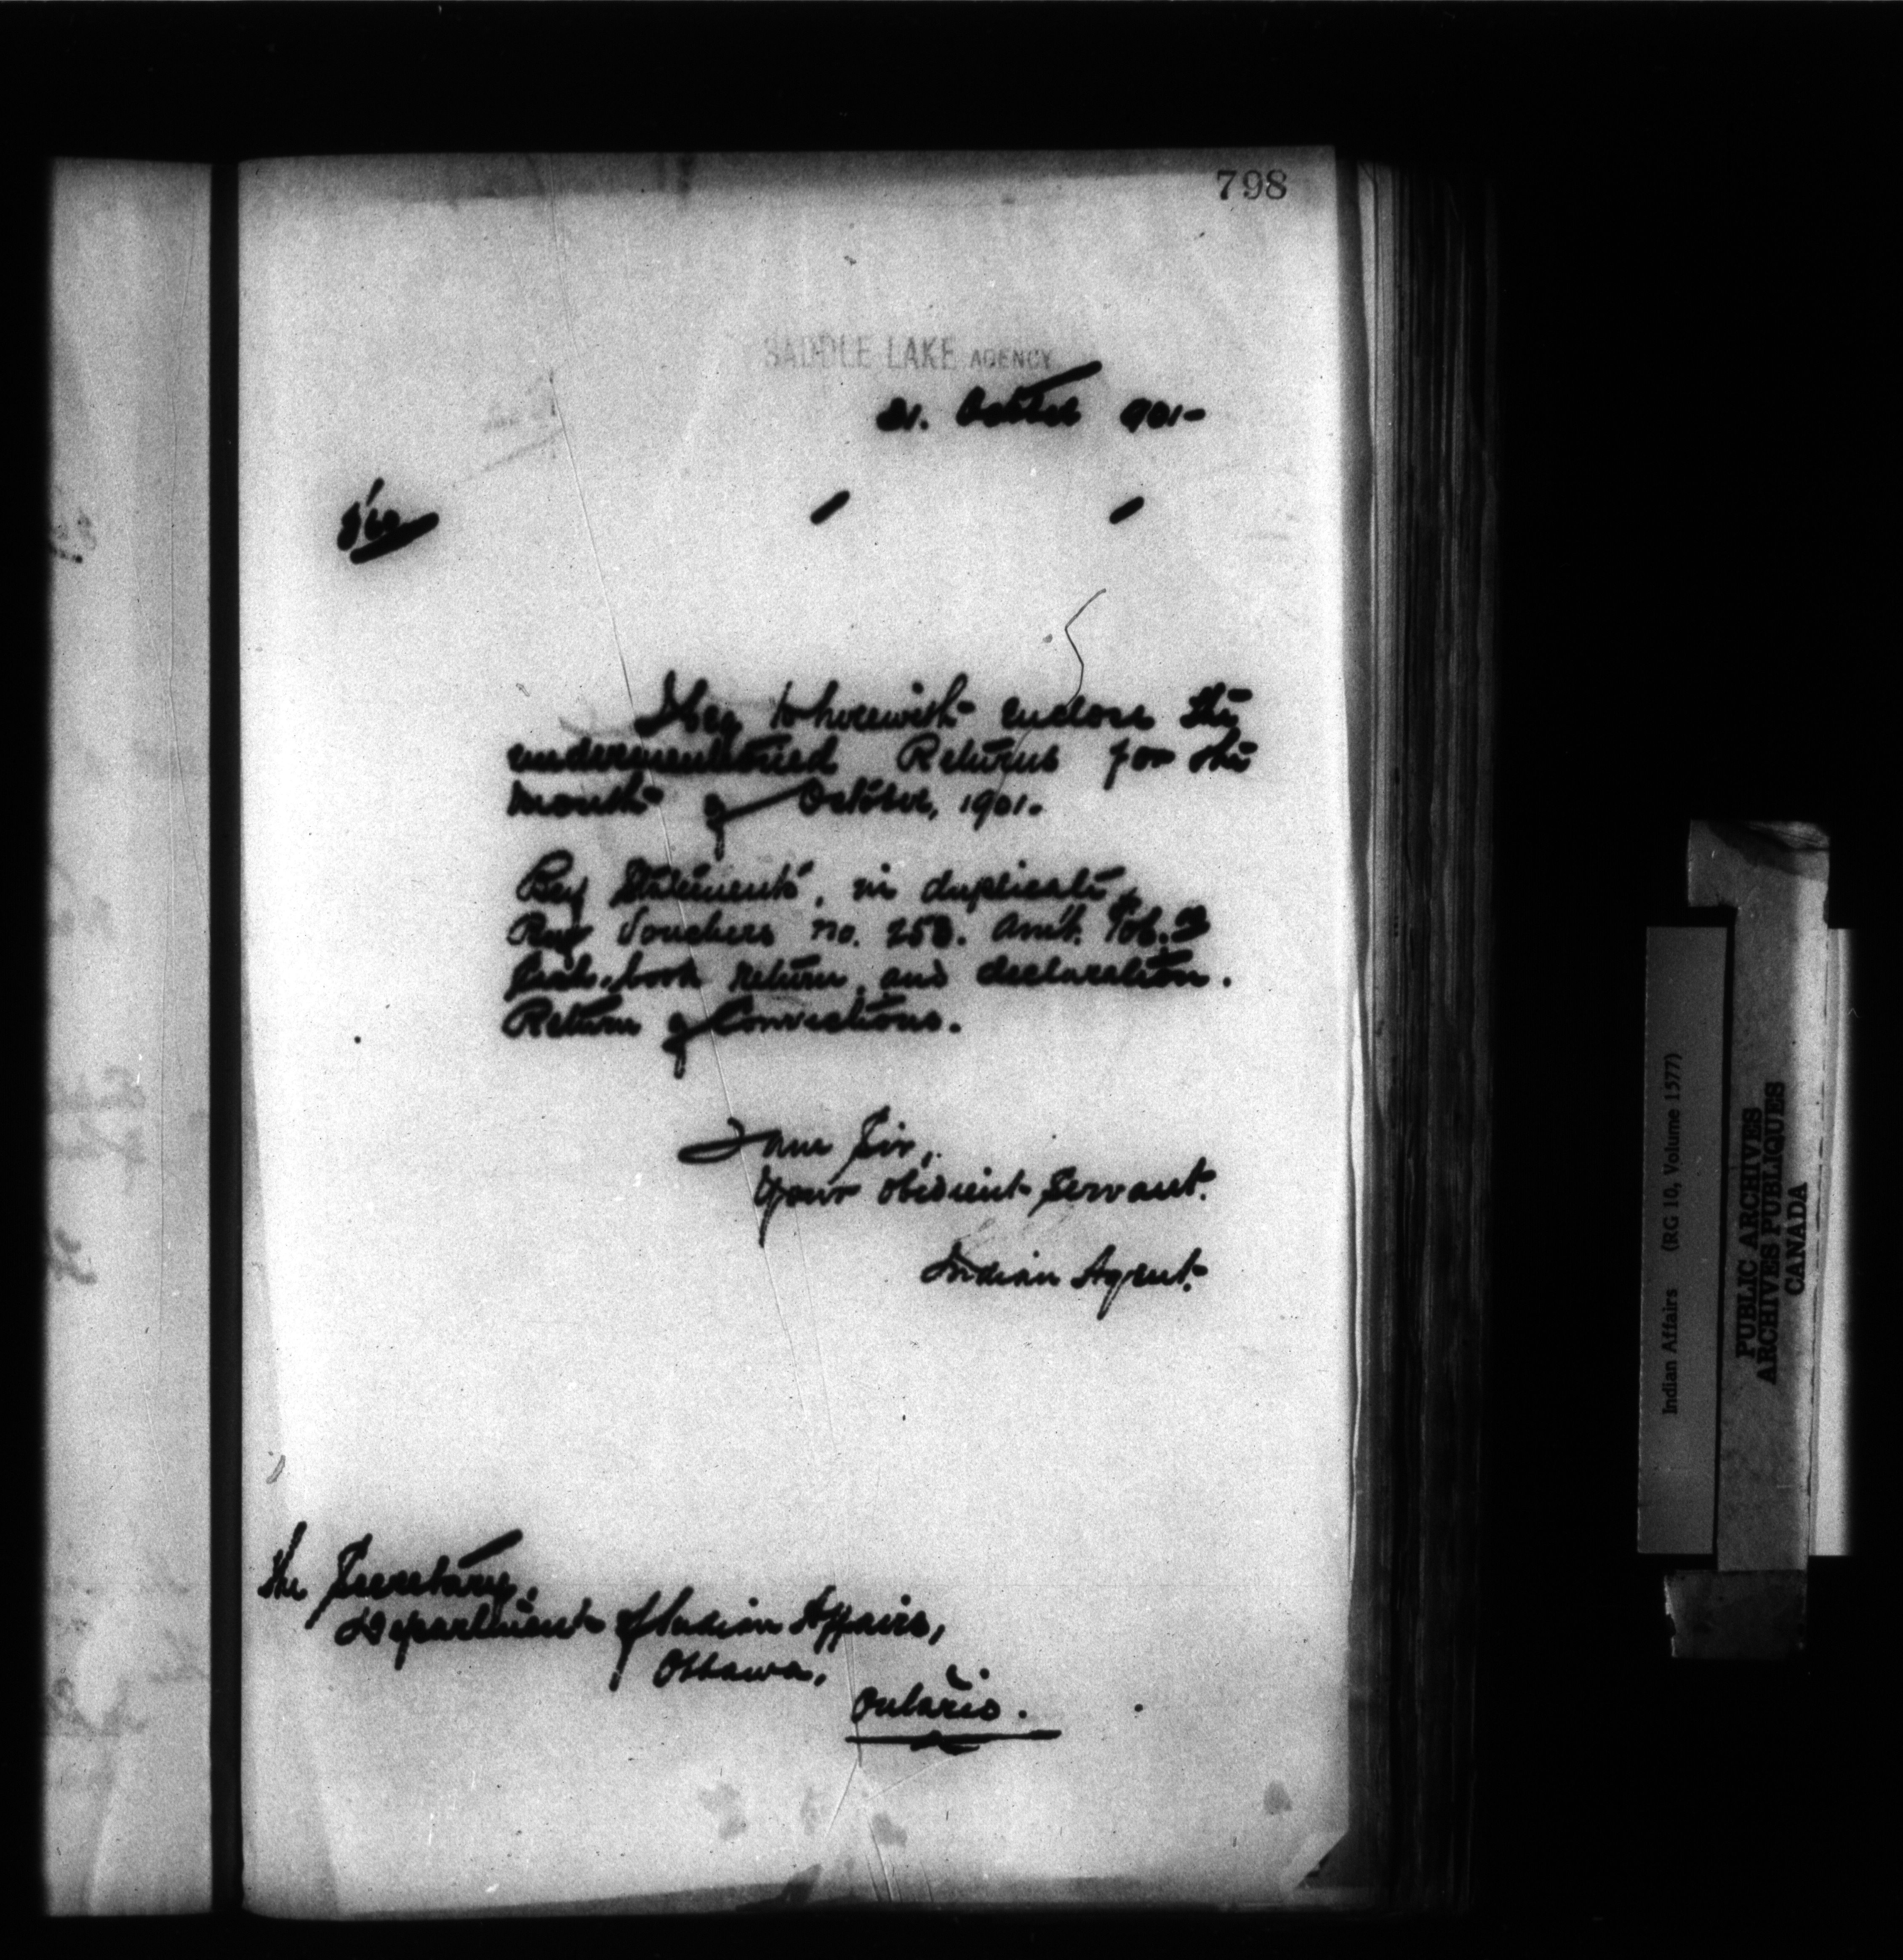 798
SADDLE LAKE AGENCY
October 1901-
Sir
I beg to herewith enclose the
undermentioned Returns for the
month of October, 1901.
Statements, in duplicate
Vouchers no. 258. Am't.
book return and declaration.
Return of Convictions.
I am Sir,
Your obedient Servant.
Indian Agent.
The Secretary,
Department of Indian Affairs,
Ottawa,
Ontario.
Indian Affairs (RG 10, Volume 1577)
PUBLIC ARCHIVES
ARCHIVES PUBLIQUES
CANADA